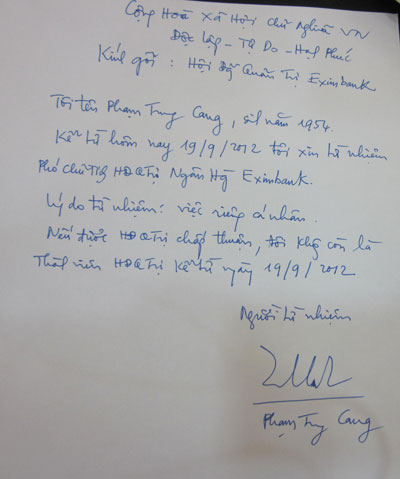 Cộng Hoà Xã Hội Chủ Nghĩa VN
Độc Lập - Tự Do - Hạnh Phúc
Kính gởi : Hội Đg Quản Trị Eximbank
Tôi tên Phạm Trung Cang, sn năm 1954.
Kể từ hôm nay 19/9/2012 tôi xin từ nhiệm
Phó chủ tịch HĐQTrị Ngân Hg Eximbank.
Lý do từ nhiệm: việc riêng cá nhân.
Nếu được HĐQTrị chấp thuận, tôi khg còn là
Thành viên HĐQTrị kể từ ngày 19/9/2012
Người từ nhiệm
Phạm Trung Cang